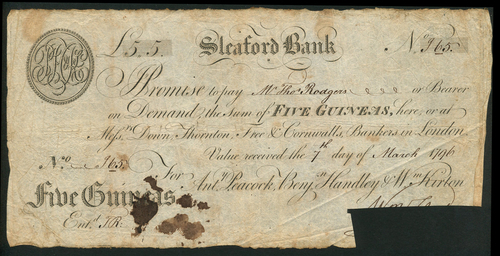 £5.5. Sleaford Bank No. 165.
Promise to pay Mr. Thos. Rodgers or Bearer
on Demand, the Sum of FIVE GUINEAS, here, or at
Messrs. Down, Thornton, Free & Cornwalls, Bankers in London
Value received the 7th day of March 1796
No. 165. For
Anty. Peacock, Benjn. Handley & Wm. Kirton
Five Guineas
Entd.